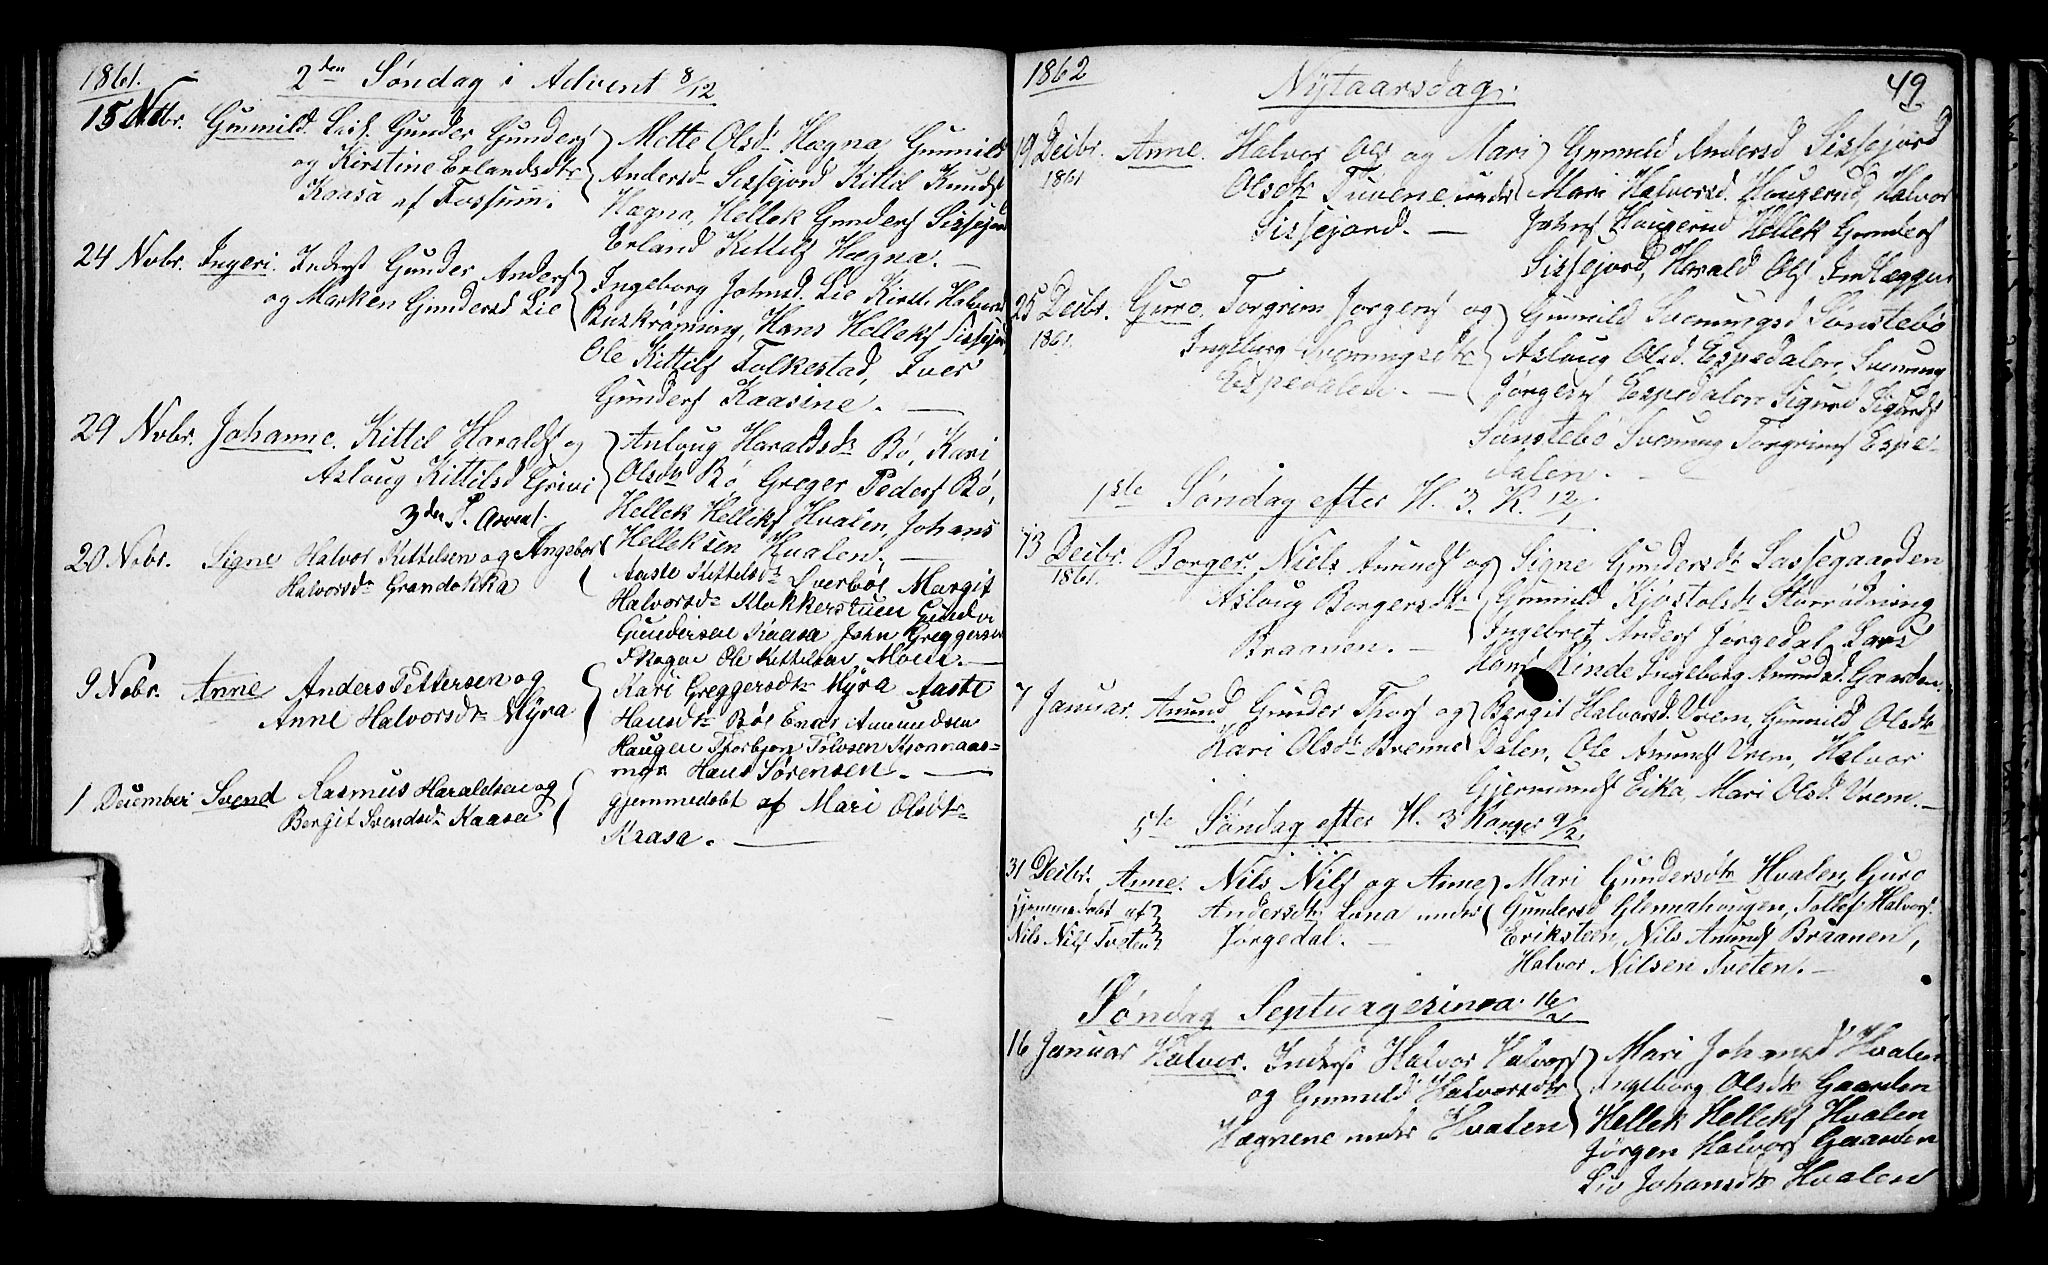 1861.
2den Søndag i Advent 8/12
15 Nvbr. Gunnild. Gunder Gunders
og Kirstine Erlandsdtr
Kaasa af Fossum.
Mette Olsdr Hægna Gunnild
Andersdr Sissejord Kittil Knuds
Hægna, Hellek Gunders Sissejord
Erland Kittils Hægna. —
24 Nvbr. Ingeri. Inderst Gunder Anders
og Marken Gundersd Lie
Ingeborg Johnsd. Lie Kirst. Halvorsd
Buskrønning, Hans Helleks Sissejord
Ole Kittils Folkestad, Iver
Gunders Kaasine. —
29 Nvbr. Johanne. Kittel Haralds og
Aslaug Kittilsd Grivi
Anlaug Haraldsdr Bø, Kari
Olsdtr Bø Greger Peders Bø,
Hellek Helleks Hvalen, Johans
Helleksen Hvalen. —
3den S. Advent.
20 Nvbr. Signe Halvor Kittelsen og Ingebor
Halvorsdr Grandokka
Aaste Kittelsdr Overbøe Margit
Halvorsdr Klokkerstuen Gunder
Gundersen Kaasa John Greggersen
Skogen Ole Kittelsen Moen. —
9 Nvbr. Anne Anders Pettersen og
Anne Halvorsdr Myra
Kari Greggersdtr Myra Aaste
Hansdtr Bøe Enar Amundsen
Haugen Thorbjørn Tolvsen Kjonnaas-
moen Hans Sørensen. —
1 December Svend Rasmus Haraldsen og
Bergit Svendsdr Kaasa
hjemmedøbt af Mari Olsdtr
Kaasa. —
1862
49
Nytaarsdag.
19 Decbr. Anne. Halvor Ols og Mari
1861
Olsdtr Tuvene under
Sissejord. —
Gunnild Andersd Sissejord
Mari Halvorsd. Haugerud, Halvor
Johns Haugerud Hellek Gunders
Sissejord, Harald Ols
25 Decbr. Guro. Torgrim Jørgens og
1861.
Ingeborg Svenungsdtr
Espedalen. —
Gunnild Svenungsd Sønstebø
Aslaug Olsd. Espedalen, Svenung
Jørgens Espedalen Sigurd Sigurds
Sønstebø Svenung Torgrims Espe-
dalen. —
1ste Søndag efter H. 3. K. 12/1.
13 Decbr. Borger. Niels Amunds og
1861.
Aslaug Borgersdtr
Braanen. —
Signe Gundersdr Lassegaarden
Gunnild Kjøstolsdr Storrødning
Ingebret Anders Jørgedal Lars
Hans Rinde Ingeborg Amundsd. Gaarden.
7 Januar. Amund. Gunder Thors og
Kari Olsdr Brenne
Bergit Halvorsd. Vrem, Gunnild Olsdtr
Dalen, Ole Amunds Vrem, Halvor
Gjermunds Eika, Mari Olsd. Vrem. —
5te Søndag efter H. 3 Konger 9/2.
31 Decbr. Anne. Nils Nils og Anne
hjemmedøbt af
Andersdtr Lona under
Nils Nils Tveten
Jørgedal. —
Mari Gundersdtr Hvalen, Guro
Gundersd Glennahaugen, Tollef Halvors
Eriksteen, Nils Amunds Braanen,
Halvor Nilsen Tveten. —
Søndag Septuagesinma 16/2
16 Januar Halvor. Inderst Halvor Halvors
og Gunnild Halvorsdtr
Hægnene under Hvalen
Mari Johansd Hvalen
Ingeborg Olsdtr Gaarden
Hellek Helleks Hvalen
Jørgen Halvors Gaarden
Liv Johansdtr Hvalen